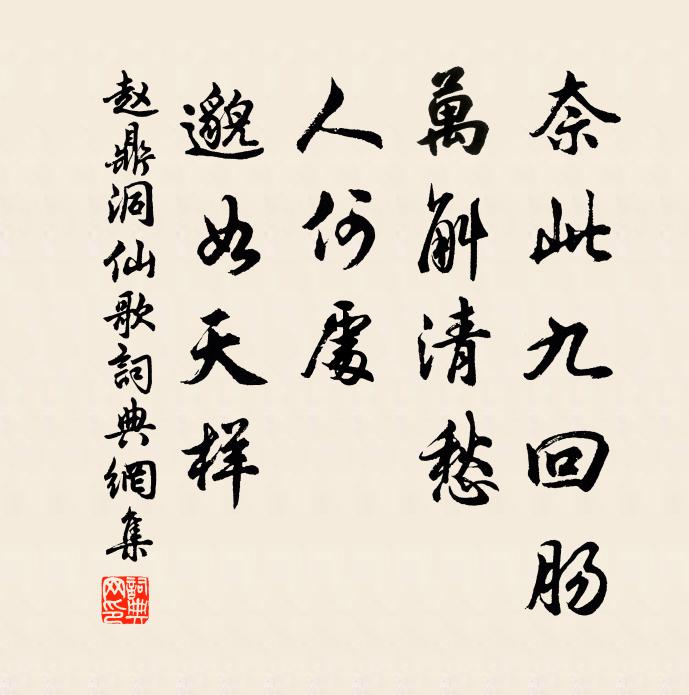 奈此九回肠
萬斛清愁
人何處
邈如天样
赵鼎洞仙歌詞典網集
詞典網印